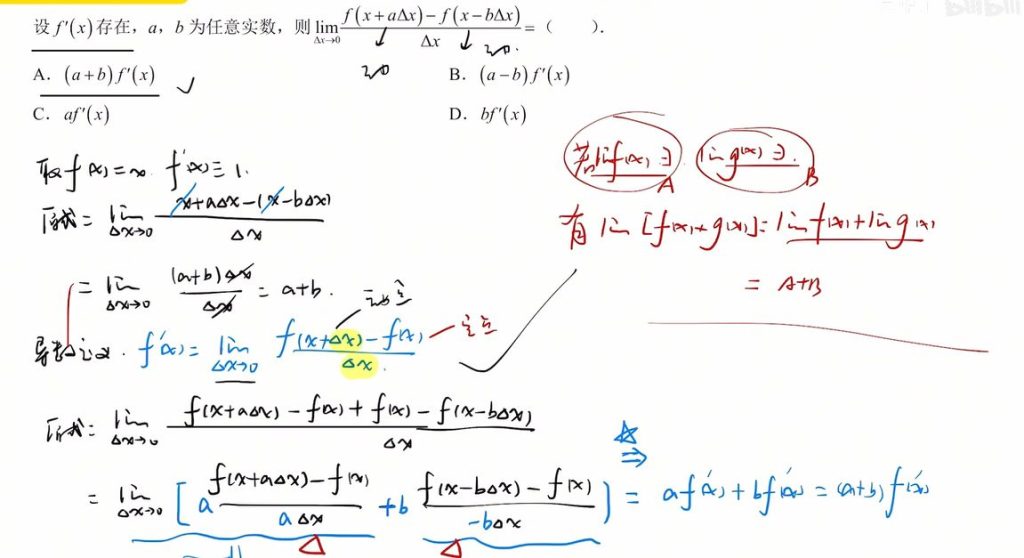 设 f'(x) 存在，a，b 为任意实数，则 lim_{Δx→0} (f(x+aΔx)−f(x−bΔx))/Δx = (    ).
A. (a+b)f'(x) ✓
B. (a−b)f'(x)
C. af'(x)
D. bf'(x)
取 f(x)=x. f'(x)≡1.
原式 = lim_{Δx→0} (x+aΔx−(x−bΔx))/Δx
= lim_{Δx→0} (a+b)Δx/Δx = a+b.
导数定义. f'(x) = lim_{Δx→0} (f(x+Δx)−f(x))/Δx.
原式 = lim_{Δx→0} (f(x+aΔx)−f(x)+f(x)−f(x−bΔx))/Δx
= lim_{Δx→0} [a (f(x+aΔx)−f(x))/(aΔx) +b (f(x−bΔx)−f(x))/(−bΔx)] = af'(x)+bf'(x) = (a+b)f'(x)
若 lim f(x) ∃ lim g(x) ∃.
A B
有 lim [f(x)+g(x)] = lim f(x)+lim g(x)
= A+B
bilibili